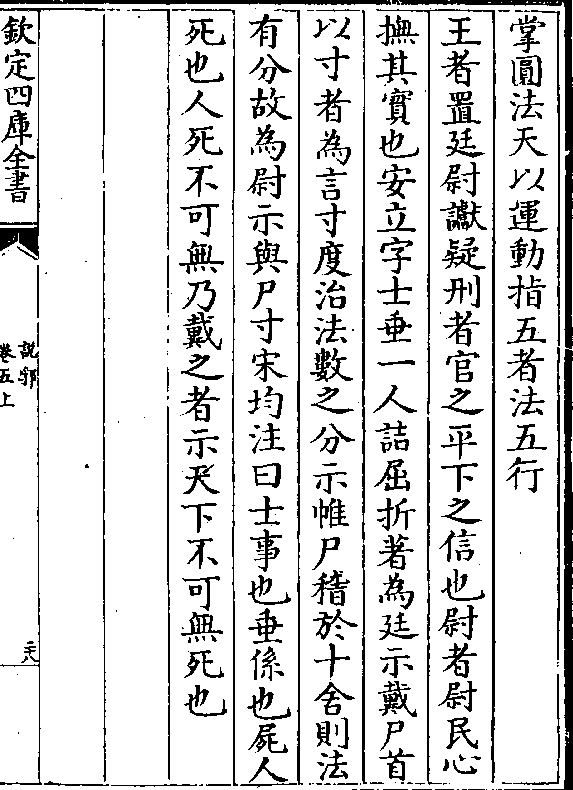 掌圓法天以運動指五者法五行
王者置廷尉讞疑刑者官之平下之信也尉者尉民心
撫其實也安立字士垂一人詰屈折著為廷示戴尸首
以寸者為言寸度治法數之分示惟尸稽於十舍則法
有分故為尉示與尸寸宋均注曰士事也垂係也屍人
死也人死不可無乃戴之者示天下不可無死也
欽定四庫全書
說郛
卷五上
二六